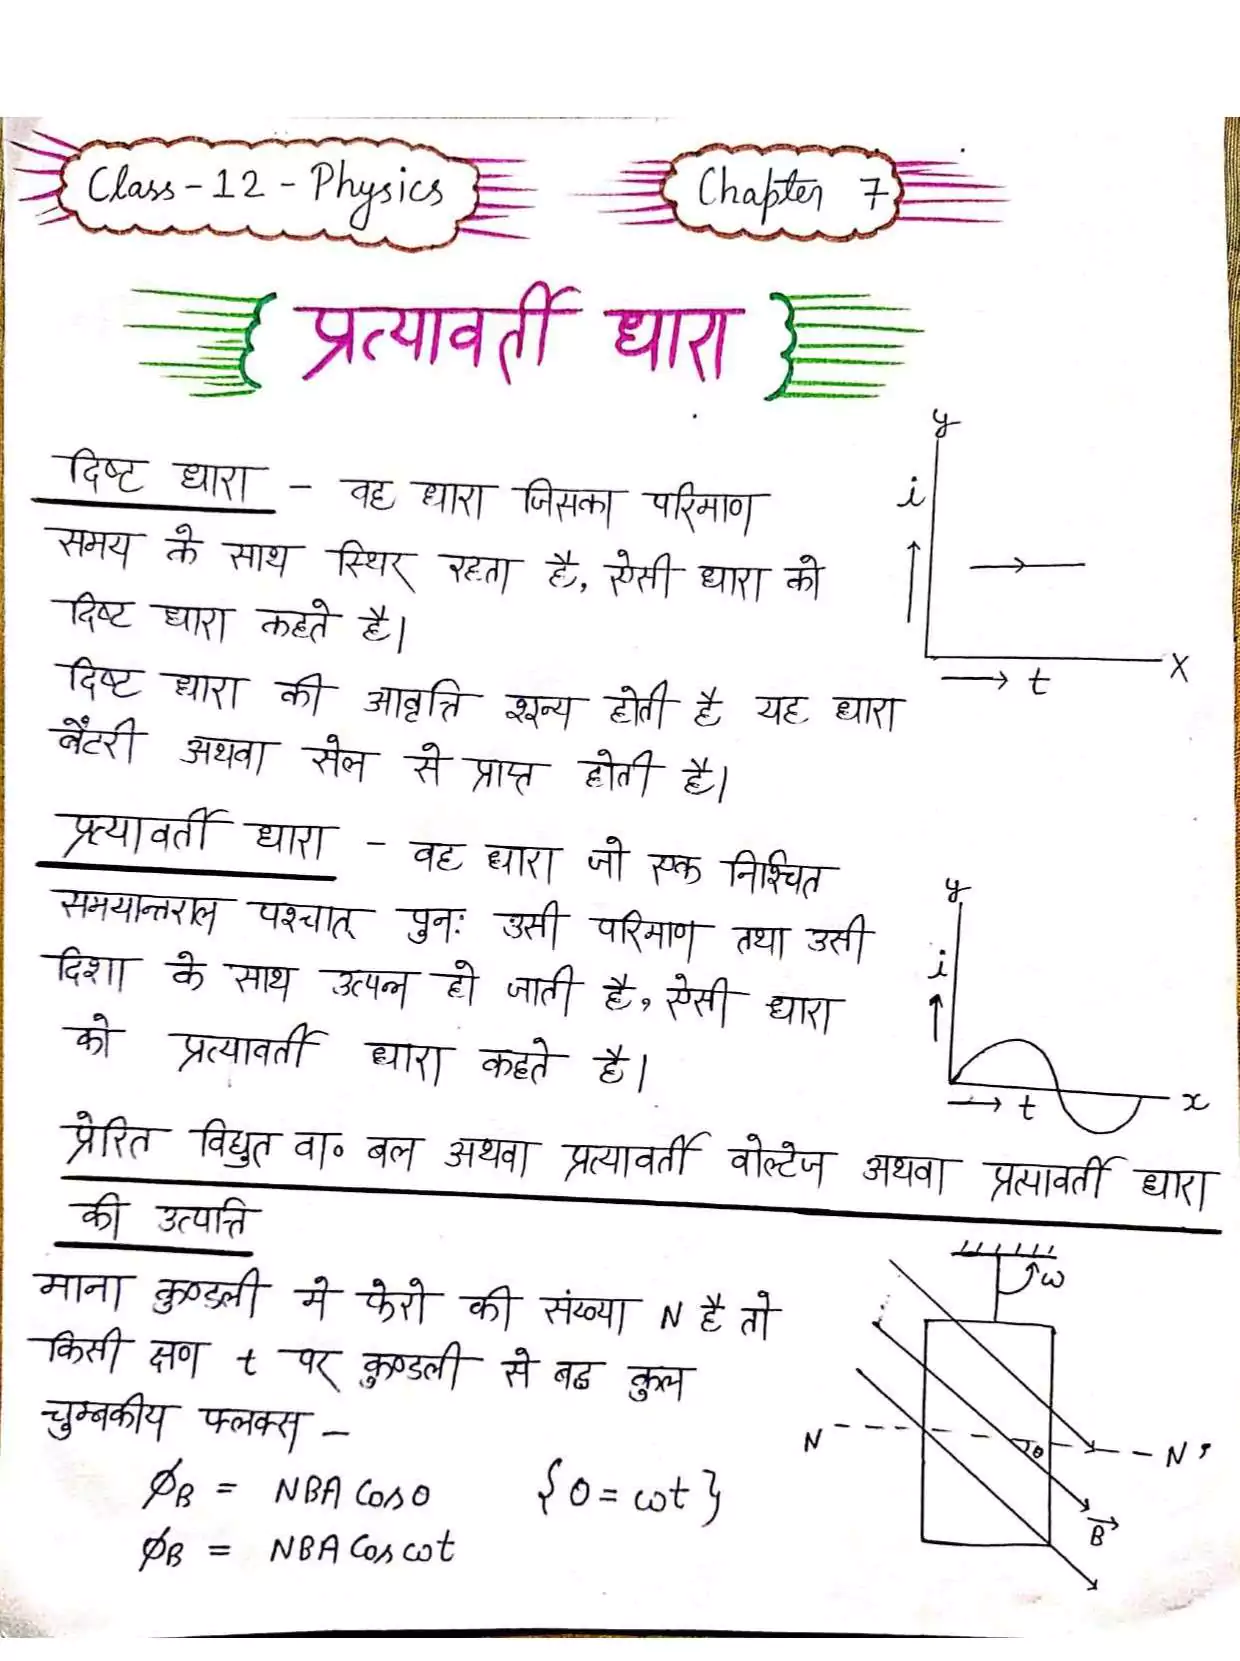 Class-12-Physics
Chapter 7
प्रत्यावर्ती धारा
दिष्ट धारा - वह धारा जिसका परिमाण
समय के साथ स्थिर रहता है, ऐसी धारा को
दिष्ट धारा कहते है।
दिष्ट धारा की आवृत्ति शून्य होती है यह धारा
बैटरी अथवा सेल से प्राप्त होती है।
y
i
t
X
प्रत्यावर्ती धारा - वह धारा जो एक निश्चित
समयान्तराल पश्चात् पुनः उसी परिमाण तथा उसी
दिशा के साथ उत्पन्न हो जाती है, ऐसी धारा
को प्रत्यावर्ती धारा कहते है।
y
i
t
x
प्रेरित विद्युत वा॰ बल अथवा प्रत्यावर्ती वोल्टेज अथवा प्रत्यावर्ती धारा
की उत्पत्ति
माना कुण्डली मे फेरो की संख्या N है तो
किसी क्षण t पर कुण्डली से बद्ध कुल
चुम्बकीय फ्लक्स -
ϕB = NBA Cosθ {θ = ωt}
ϕB = NBA Cosωt
ω
N
θ
N'
B⃗